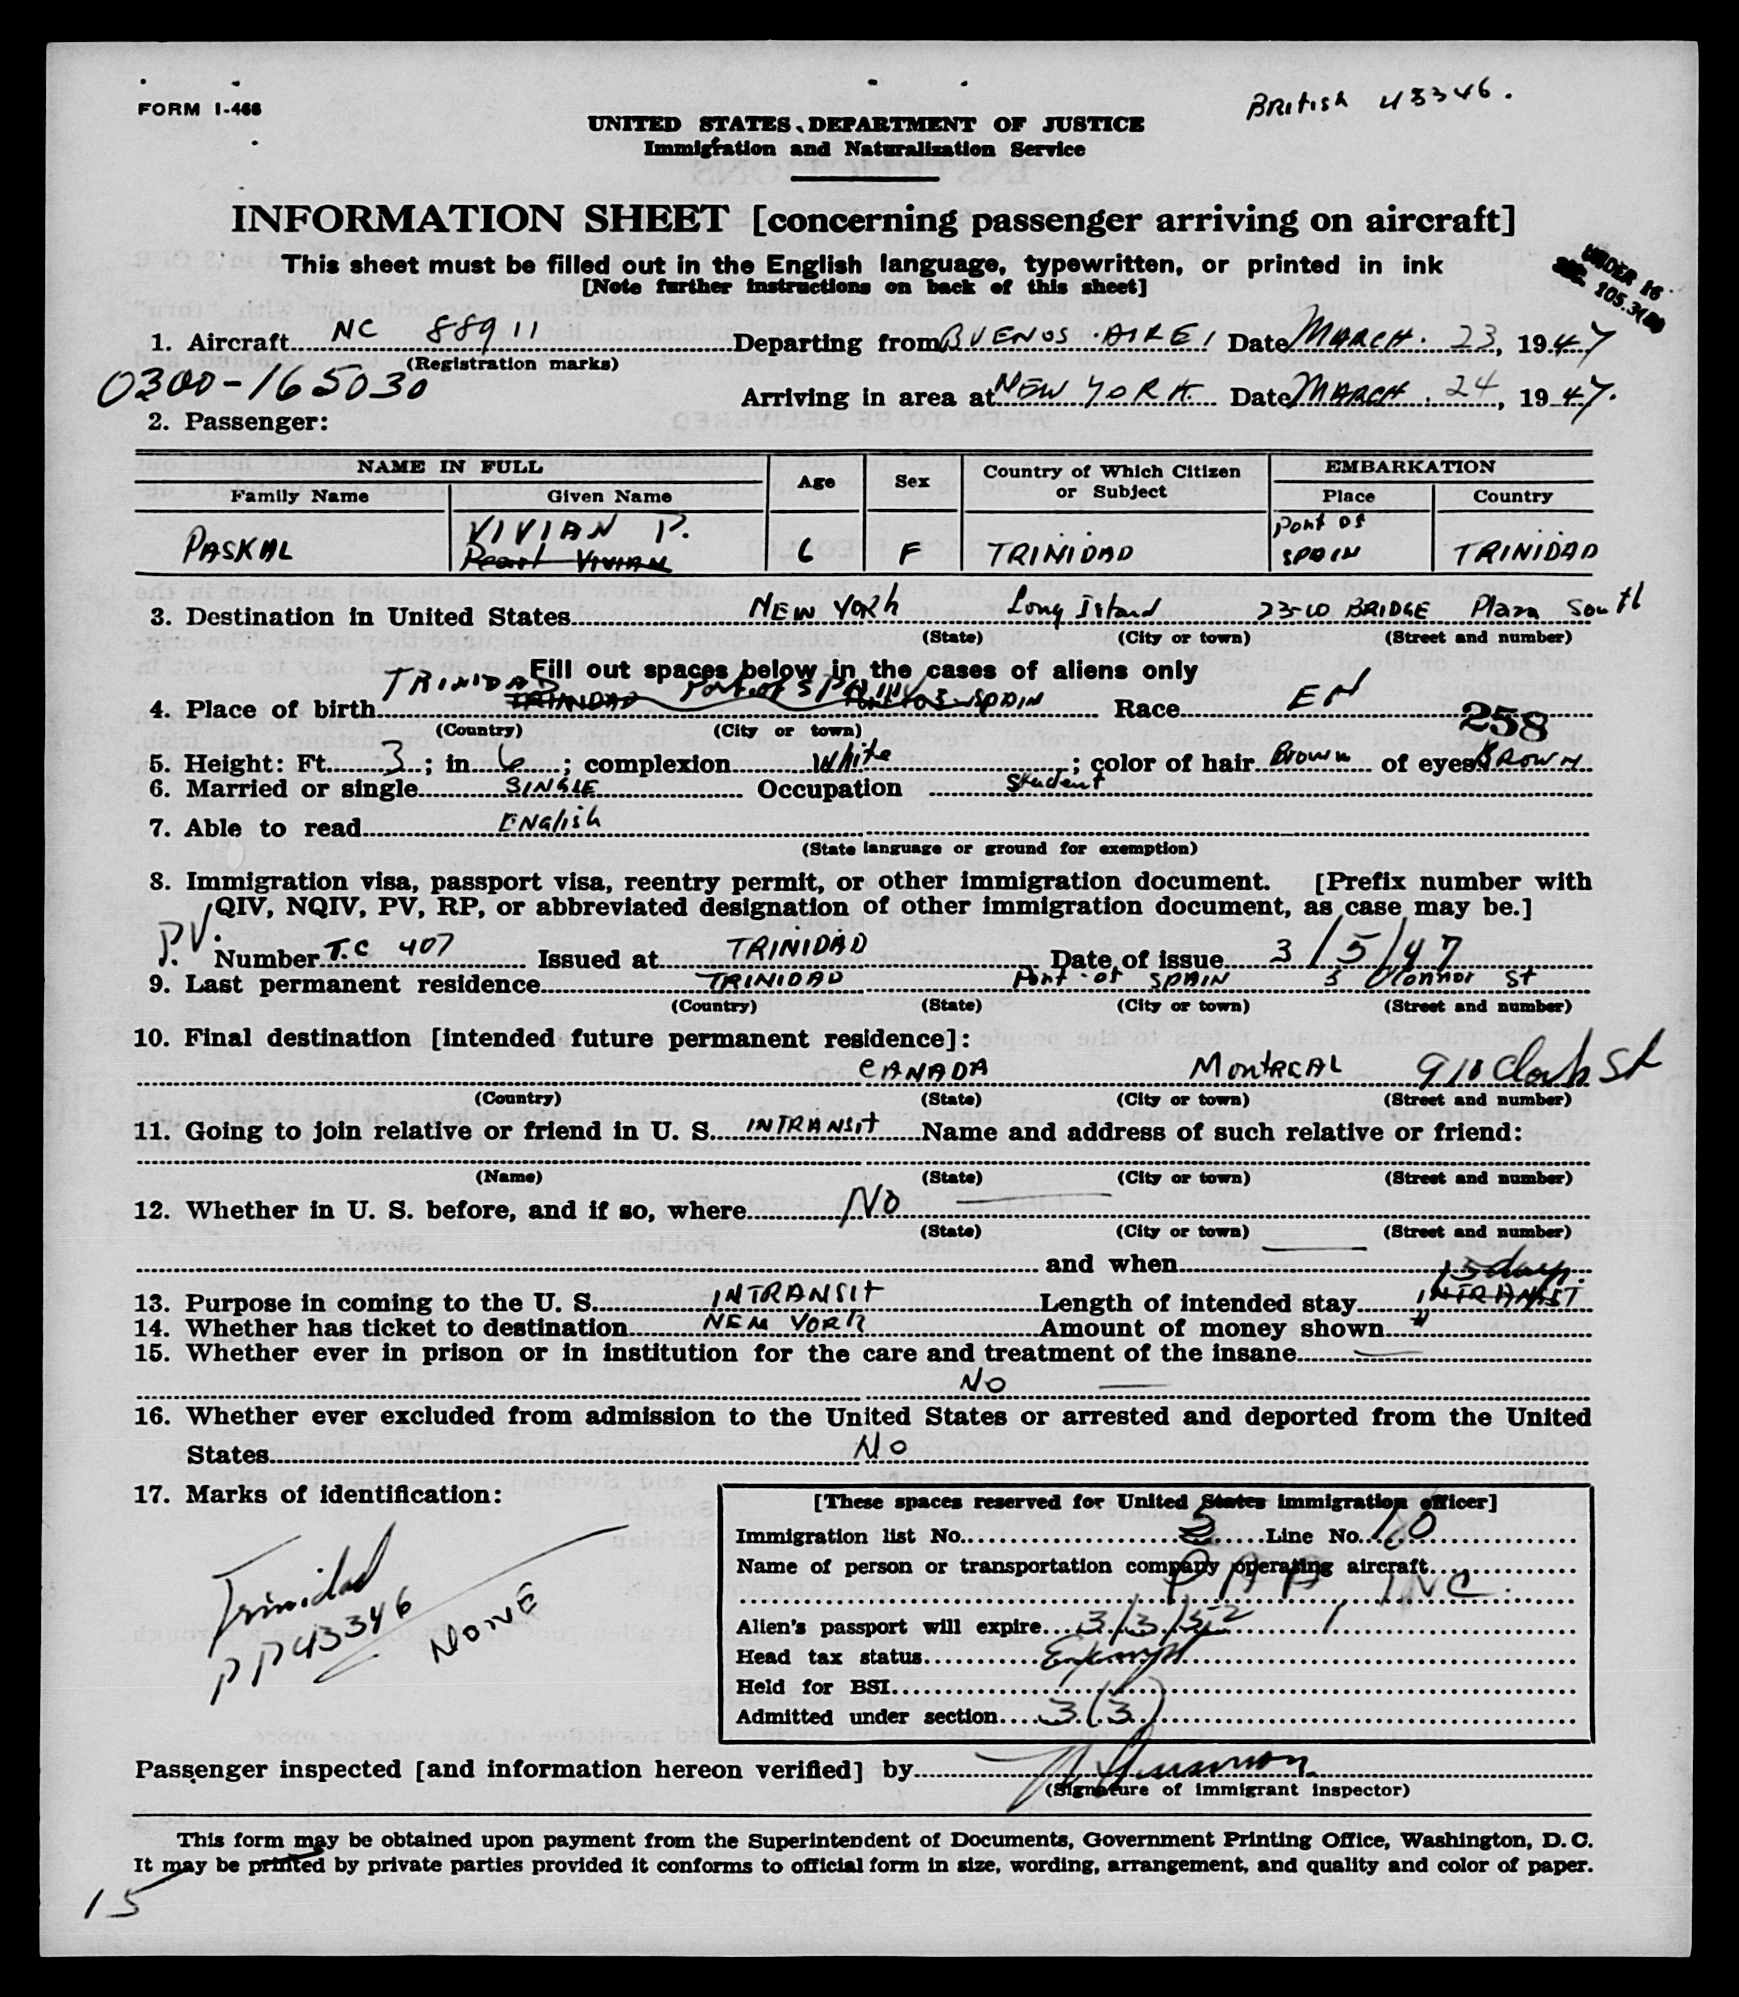 FORM I-466
British 43346.
UNITED STATES DEPARTMENT OF JUSTICE
Immigration and Naturalization Service
INFORMATION SHEET [concerning passenger arriving on aircraft]
This sheet must be filled out in the English language, typewritten, or printed in ink
[Note further instructions on back of this sheet]
UNDER 16
SEC. 105.3
1. Aircraft NC 88911 Departing from BUENOS AIRES Date MARCH 23, 1947
(Registration marks)
0300-165030
Arriving in area at NEW YORK Date MARCH 24, 1947.
2. Passenger:
NAME IN FULL Age Sex Country of Which Citizen or Subject EMBARKATION
Family Name Given Name Place Country
PASKAL VIVIAN P. Pearl VIVIAN 6 F TRINIDAD Port of SPAIN TRINIDAD
3. Destination in United States NEW YORK Long Island 23-10 BRIDGE Plaza South
(State) (City or town) (Street and number)
Fill out spaces below in the cases of aliens only
TRINIDAD Port of SPAIN
4. Place of birth TRINIDAD Port of SPAIN Race EN
(Country) (City or town)
258
5. Height: Ft. 3; in. 6; complexion White; color of hair Brown of eyes BROWN
6. Married or single SINGLE Occupation Student
7. Able to read ENGlish
(State language or ground for exemption)
8. Immigration visa, passport visa, reentry permit, or other immigration document. [Prefix number with
QIV, NQIV, PV, RP, or abbreviated designation of other immigration document, as case may be.]
P.V. Number T.C 407 Issued at TRINIDAD Date of issue 3/5/47
9. Last permanent residence TRINIDAD Port of SPAIN 5 O'Connor St
(Country) (State) (City or town) (Street and number)
10. Final destination [intended future permanent residence]:
CANADA MONTREAL 910 Clark St
(Country) (State) (City or town) (Street and number)
11. Going to join relative or friend in U. S. INTRANSIT Name and address of such relative or friend:
(Name) (State) (City or town) (Street and number)
12. Whether in U. S. before, and if so, where No
(State) (City or town) (Street and number)
and when
15 days.
13. Purpose in coming to the U. S. INTRANSIT Length of intended stay INTRANSIT
14. Whether has ticket to destination NEW YORK Amount of money shown "
15. Whether ever in prison or in institution for the care and treatment of the insane
NO
16. Whether ever excluded from admission to the United States or arrested and deported from the United
States NO
17. Marks of identification:
Trinidad
PP43346
NONE
[These spaces reserved for United States immigration officer]
Immigration list No. 5 Line No. 10
Name of person or transportation company operating aircraft
PAA INC.
Alien's passport will expire 3/3/52
Head tax status Exempt
Held for BSI
Admitted under section 3(3)
Passenger inspected [and information hereon verified] by
(Signature of immigrant inspector)
This form may be obtained upon payment from the Superintendent of Documents, Government Printing Office, Washington, D. C.
It may be printed by private parties provided it conforms to official form in size, wording, arrangement, and quality and color of paper.
15